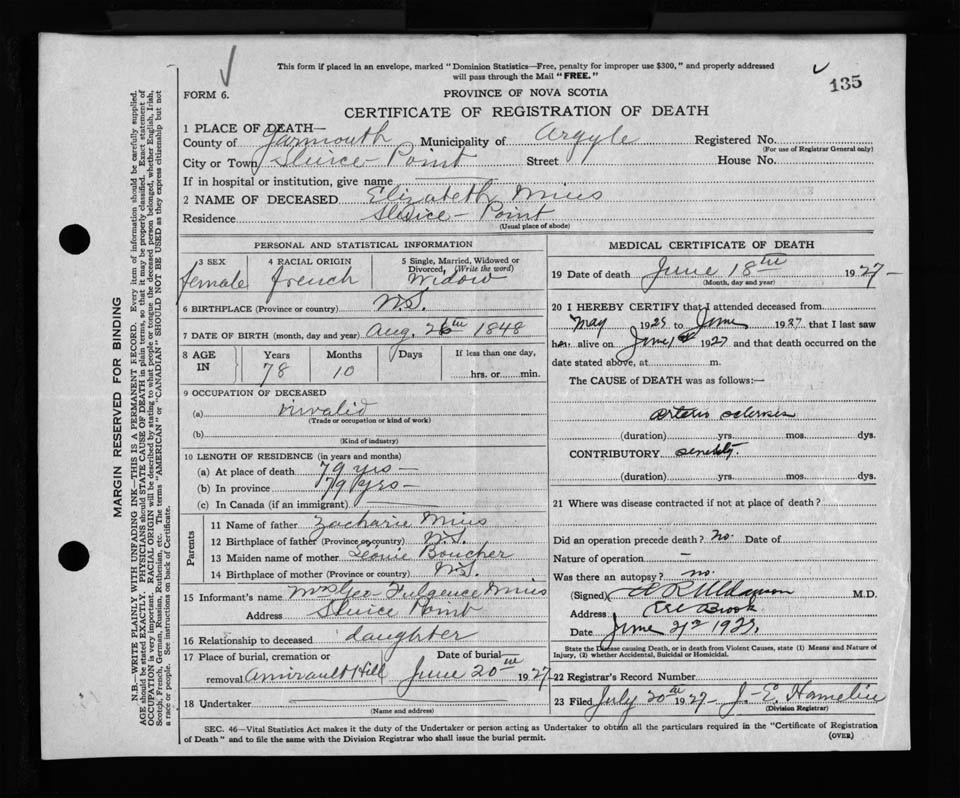 This form if placed in an envelope, marked "Dominion Statistics—Free, penalty for improper use $300," and properly addressed
will pass through the Mail "FREE."
135
FORM 6.
PROVINCE OF NOVA SCOTIA
CERTIFICATE OF REGISTRATION OF DEATH
1 PLACE OF DEATH—
County of Yarmouth Municipality of Argyle Registered No.
(For use of Registrar General only)
City or Town Sluice-Point Street House No.
If in hospital or institution, give name
2 NAME OF DECEASED Elizabeth Mius
Residence Sluice-Point
(Usual place of abode)
PERSONAL AND STATISTICAL INFORMATION
3 SEX 4 RACIAL ORIGIN 5 Single, Married, Widowed or
Divorced, (Write the word)
female french Widow
6 BIRTHPLACE (Province or country) N.S.
7 DATE OF BIRTH (month, day and year) Aug. 26th 1848
8 AGE IN Years Months Days If less than one day,
78 10 hrs. or min.
9 OCCUPATION OF DECEASED
(a) invalid
(Trade or occupation or kind of work)
(b)
(Kind of industry)
10 LENGTH OF RESIDENCE (in years and months)
(a) At place of death 79 yrs —
(b) In province 79 yrs —
(c) In Canada (if an immigrant)
Parents
11 Name of father Zacharie Mius
12 Birthplace of father (Province or country) N.S.
13 Maiden name of mother Leonie Boucher
14 Birthplace of mother (Province or country) N.S.
15 Informant's name Mrs Geo-Fulgence Mius
Address Sluice Point
16 Relationship to deceased daughter
17 Place of burial, cremation or Date of burial
removal Amirault Hill June 20th 1927
18 Undertaker
(Name and address)
MEDICAL CERTIFICATE OF DEATH
19 Date of death June 18th 1927-
(Month, day and year)
20 I HEREBY CERTIFY that I attended deceased from
May 1925 to June 1927 that I last saw
her alive on June 1st 1927 and that death occurred on the
date stated above, at m.
The CAUSE of DEATH was as follows:—
arterio sclerosis
(duration) yrs. mos. dys.
CONTRIBUTORY senility.
(duration) yrs. mos. dys.
21 Where was disease contracted if not at place of death?
Did an operation precede death? no. Date of
Nature of operation —
Was there an autopsy? no.
(Signed) M.D.
Address Brook
Date June 1927.
State the Disease causing Death, or in death from Violent Causes, state (1) Means and Nature of
Injury, (2) whether Accidental, Suicidal or Homicidal.
22 Registrar's Record Number
23 Filed July 20th 1927- J. E. Hamelin
(Division Registrar)
SEC. 46—Vital Statistics Act makes it the duty of the Undertaker or person acting as Undertaker to obtain all the particulars required in the "Certificate of Registration
of Death" and to file the same with the Division Registrar who shall issue the burial permit.
(OVER)
MARGIN RESERVED FOR BINDING
N.B.—WRITE PLAINLY WITH UNFADING INK—THIS IS A PERMANENT RECORD. Every item of information should be carefully supplied.
AGE should be stated EXACTLY. PHYSICIANS should STATE CAUSE OF DEATH in plain terms, so that it may be properly classified. Exact statement of
OCCUPATION is very important. RACIAL ORIGIN will be described by stating to what people or tongue the deceased person belonged, whether English, Irish,
Scotch, French, German, Russian, Ruthenian, etc. The terms "AMERICAN" or "CANADIAN" SHOULD NOT BE USED as they express citizenship but not
a race or people. See instructions on back of Certificate.